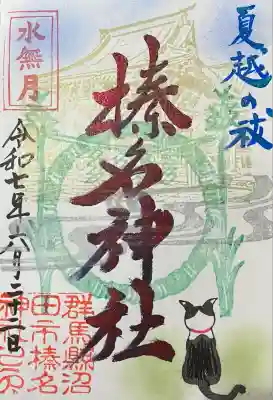 夏越の祓
水無月
榛名神社
令和七年六月二十二日
群馬縣沼
田市榛名